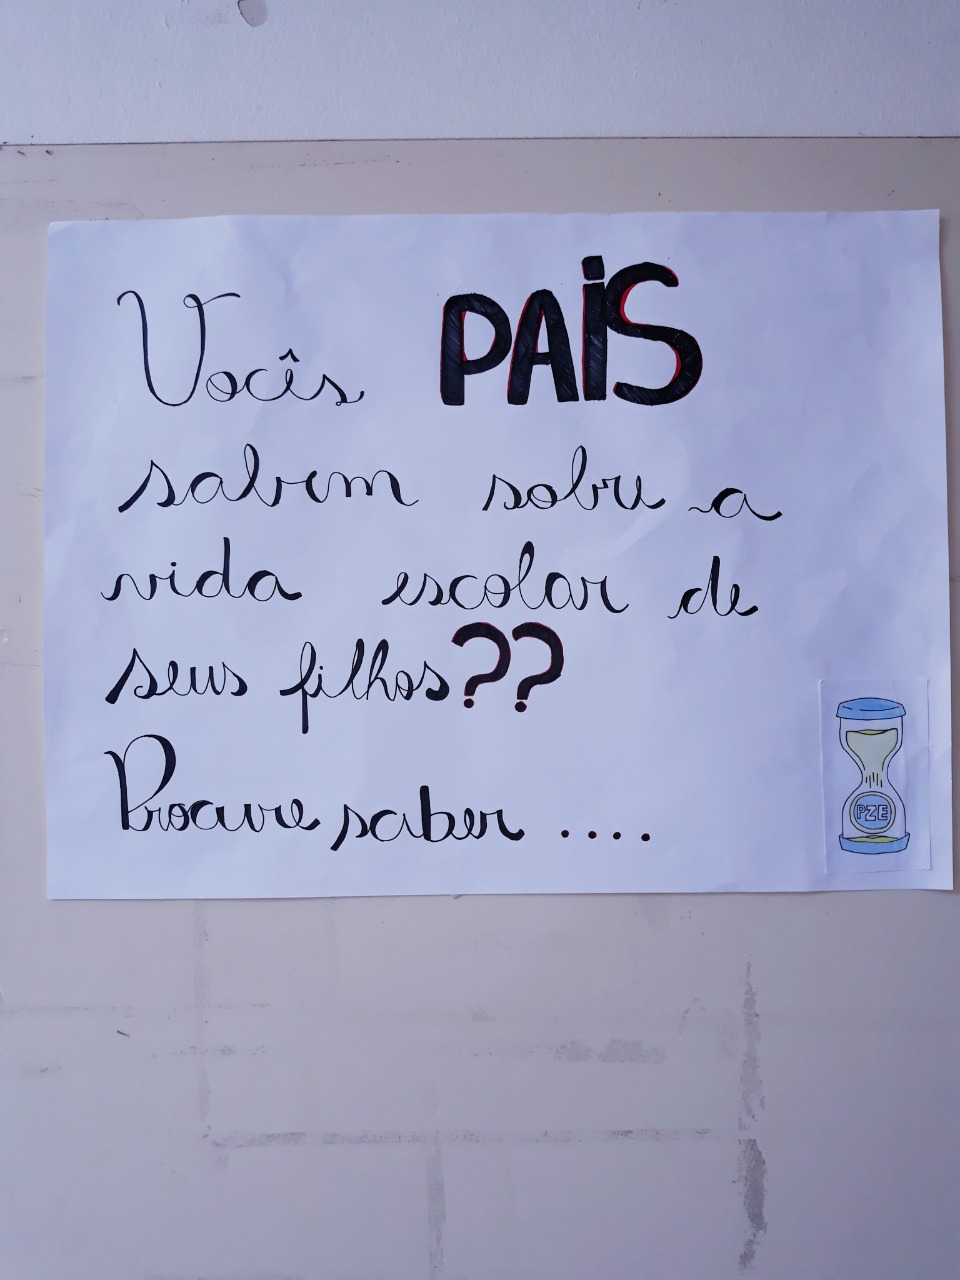 Vocês PAiS
sabem sobre a
vida escolar de
seus filhos??
Procure saber ....
PZE